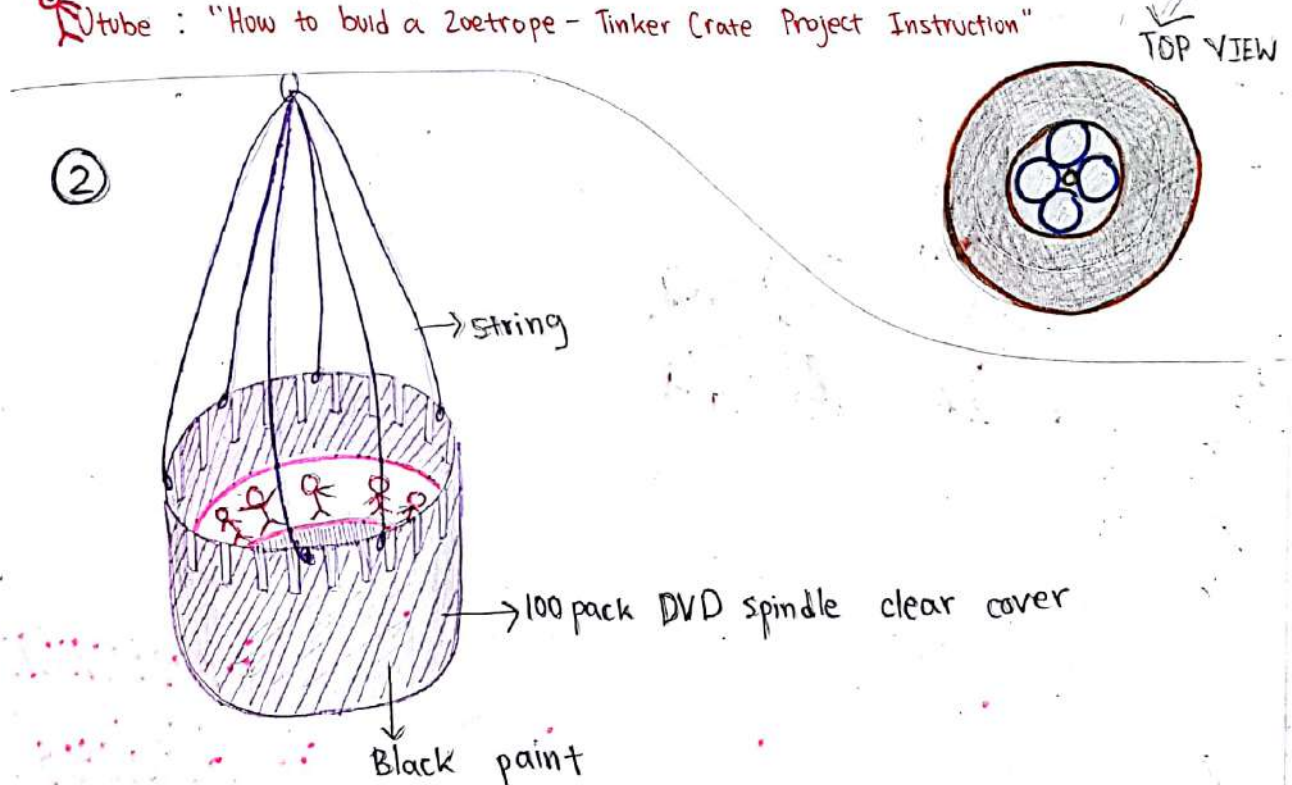 Utube : "How to buid a Zoetrope - Tinker Crate Project Instruction"
TOP VIEW
2
string
100 pack DVD spindle clear cover
Black paint